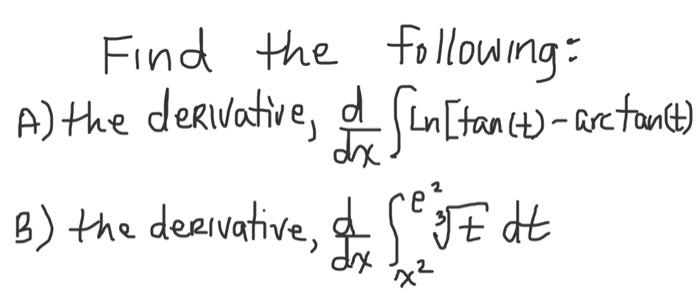 Find the following:
A) the derivative, d/dx ∫ Ln[tan(t) - arctan(t)
B) the derivative, d/dx ∫_{x²}^{e²} ∛t dt